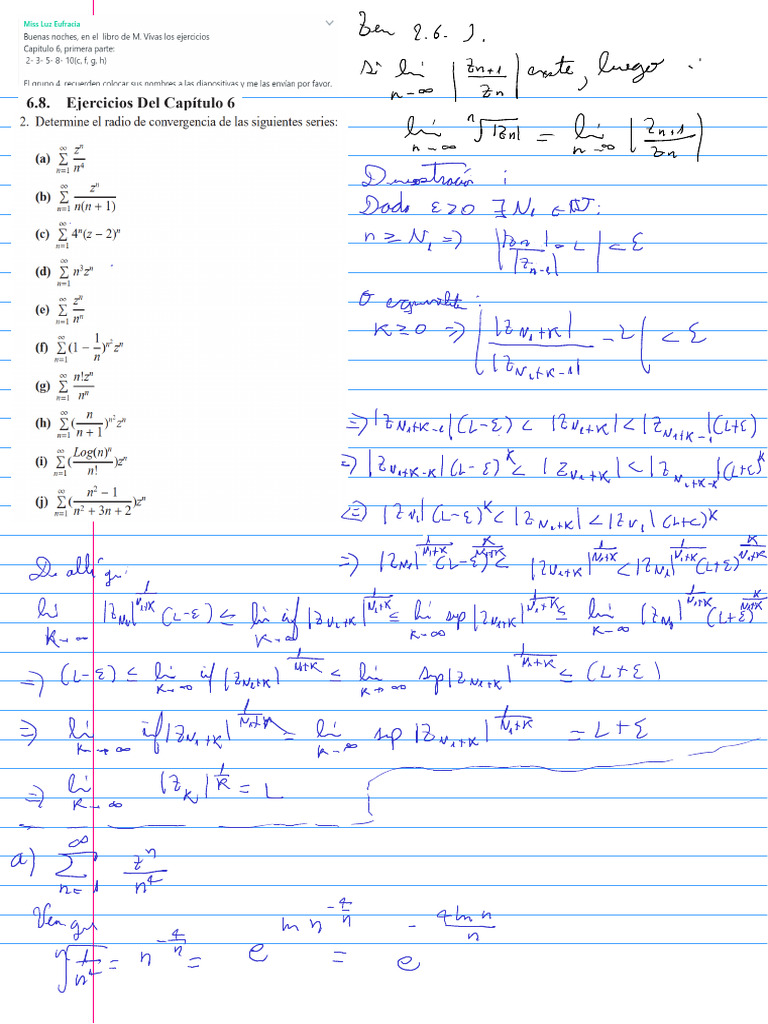 Miss Luz Eufracia
Buenas noches, en el libro de M. Vivas los ejercicios
Capitulo 6, primera parte:
2- 3- 5- 8- 10(c, f, g, h)
El grupo 4, recuerden colocar sus nombres a las diapositivas y me las envían por favor.
6.8. Ejercicios Del Capítulo 6
2. Determine el radio de convergencia de las siguientes series:
(a) ∑_{n=1}^{∞} z^n/n^4
(b) ∑_{n=1}^{∞} z^n/(n(n + 1))
(c) ∑_{n=1}^{∞} 4^n(z − 2)^n
(d) ∑_{n=1}^{∞} n^3z^n
(e) ∑_{n=1}^{∞} z^n/n^n
(f) ∑_{n=1}^{∞} (1 − 1/n)^{n^2}z^n
(g) ∑_{n=1}^{∞} n!z^n/n^n
(h) ∑_{n=1}^{∞} (n/(n + 1))^{n^2}z^n
(i) ∑_{n=1}^{∞} (Log(n)^n/n!)z^n
(j) ∑_{n=1}^{∞} ((n^2 − 1)/(n^2 + 3n + 2))z^n
2.6.1.
Si lim_{n→∞} |z_{n+1}/z_n| existe, luego :
lim_{n→∞} ⁿ√|z_n| = lim_{n→∞} |z_{n+1}/z_n|
Demostración :
Dado ε>0 ∃ N_1 ∈ ℕ:
n ≥ N_1 => ||z_n|/|z_{n-1}| - L| < ε
O equivalente :
K ≥ 0 => ||z_{N_1+K}|/|z_{N_1+K-1}| - L| < ε
=> |z_{N_1+K-1}|(L-ε) < |z_{N_1+K}| < |z_{N_1+K-1}|(L+ε)
=> |z_{N_1+K-K}|(L-ε)^K < |z_{N_1+K}| < |z_{N_1+K-K}|(L+ε)^K
=> |z_{N_1}|(L-ε)^K < |z_{N_1+K}| < |z_{N_1}|(L+ε)^K
=> |z_{N_1}|^{1/(N_1+K)} (L-ε)^{K/(N_1+K)} < |z_{N_1+K}|^{1/(N_1+K)} < |z_{N_1}|^{1/(N_1+K)} (L+ε)^{K/(N_1+K)}
De allí que
lim_{K→∞} |z_{N_1}|^{1/(N_1+K)} (L-ε) ≤ lim_{K→∞} inf |z_{N_1+K}|^{1/(N_1+K)} ≤ lim_{K→∞} sup |z_{N_1+K}|^{1/(N_1+K)} ≤ lim_{K→∞} |z_{N_1}|^{1/(N_1+K)} (L+ε)^{K/(N_1+K)}
=> (L-ε) ≤ lim_{K→∞} inf |z_{N_1+K}|^{1/(N_1+K)} ≤ lim_{K→∞} sup |z_{N_1+K}|^{1/(N_1+K)} ≤ (L+ε)
=> lim_{K→∞} inf |z_{N_1+K}|^{1/(N_1+K)} = lim_{K→∞} sup |z_{N_1+K}|^{1/(N_1+K)} = L+ε
=> lim_{K→∞} |z_K|^{1/K} = L
a) ∑_{n=1}^{∞} z^n/n^4
Ven que
ⁿ√(1/n^4) = n^{-4/n} = e^{ln n^{-4/n}} = e^{-4 ln n/n}